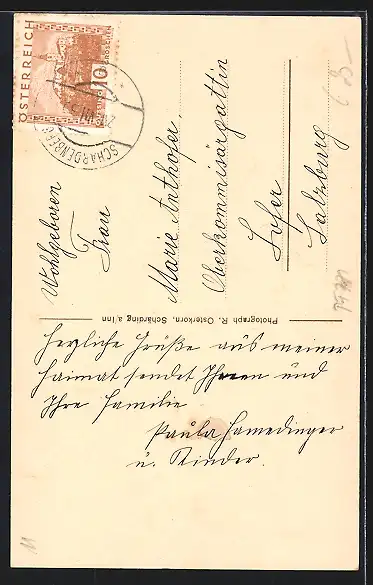 ÖSTERREICH
10
GROSCHEN
SCHARDENBERG
Wohlgeboren
Frau
Marie Anthofer,
Oberkommisärgattin
Lofer
Salzburg
Photograph R. Osterkorn, Schärding a/Inn
Herzliche Grüße aus meiner
Heimat sendet Ihnen und
Ihre Familie
Paula Hamedinger
u. Kinder.